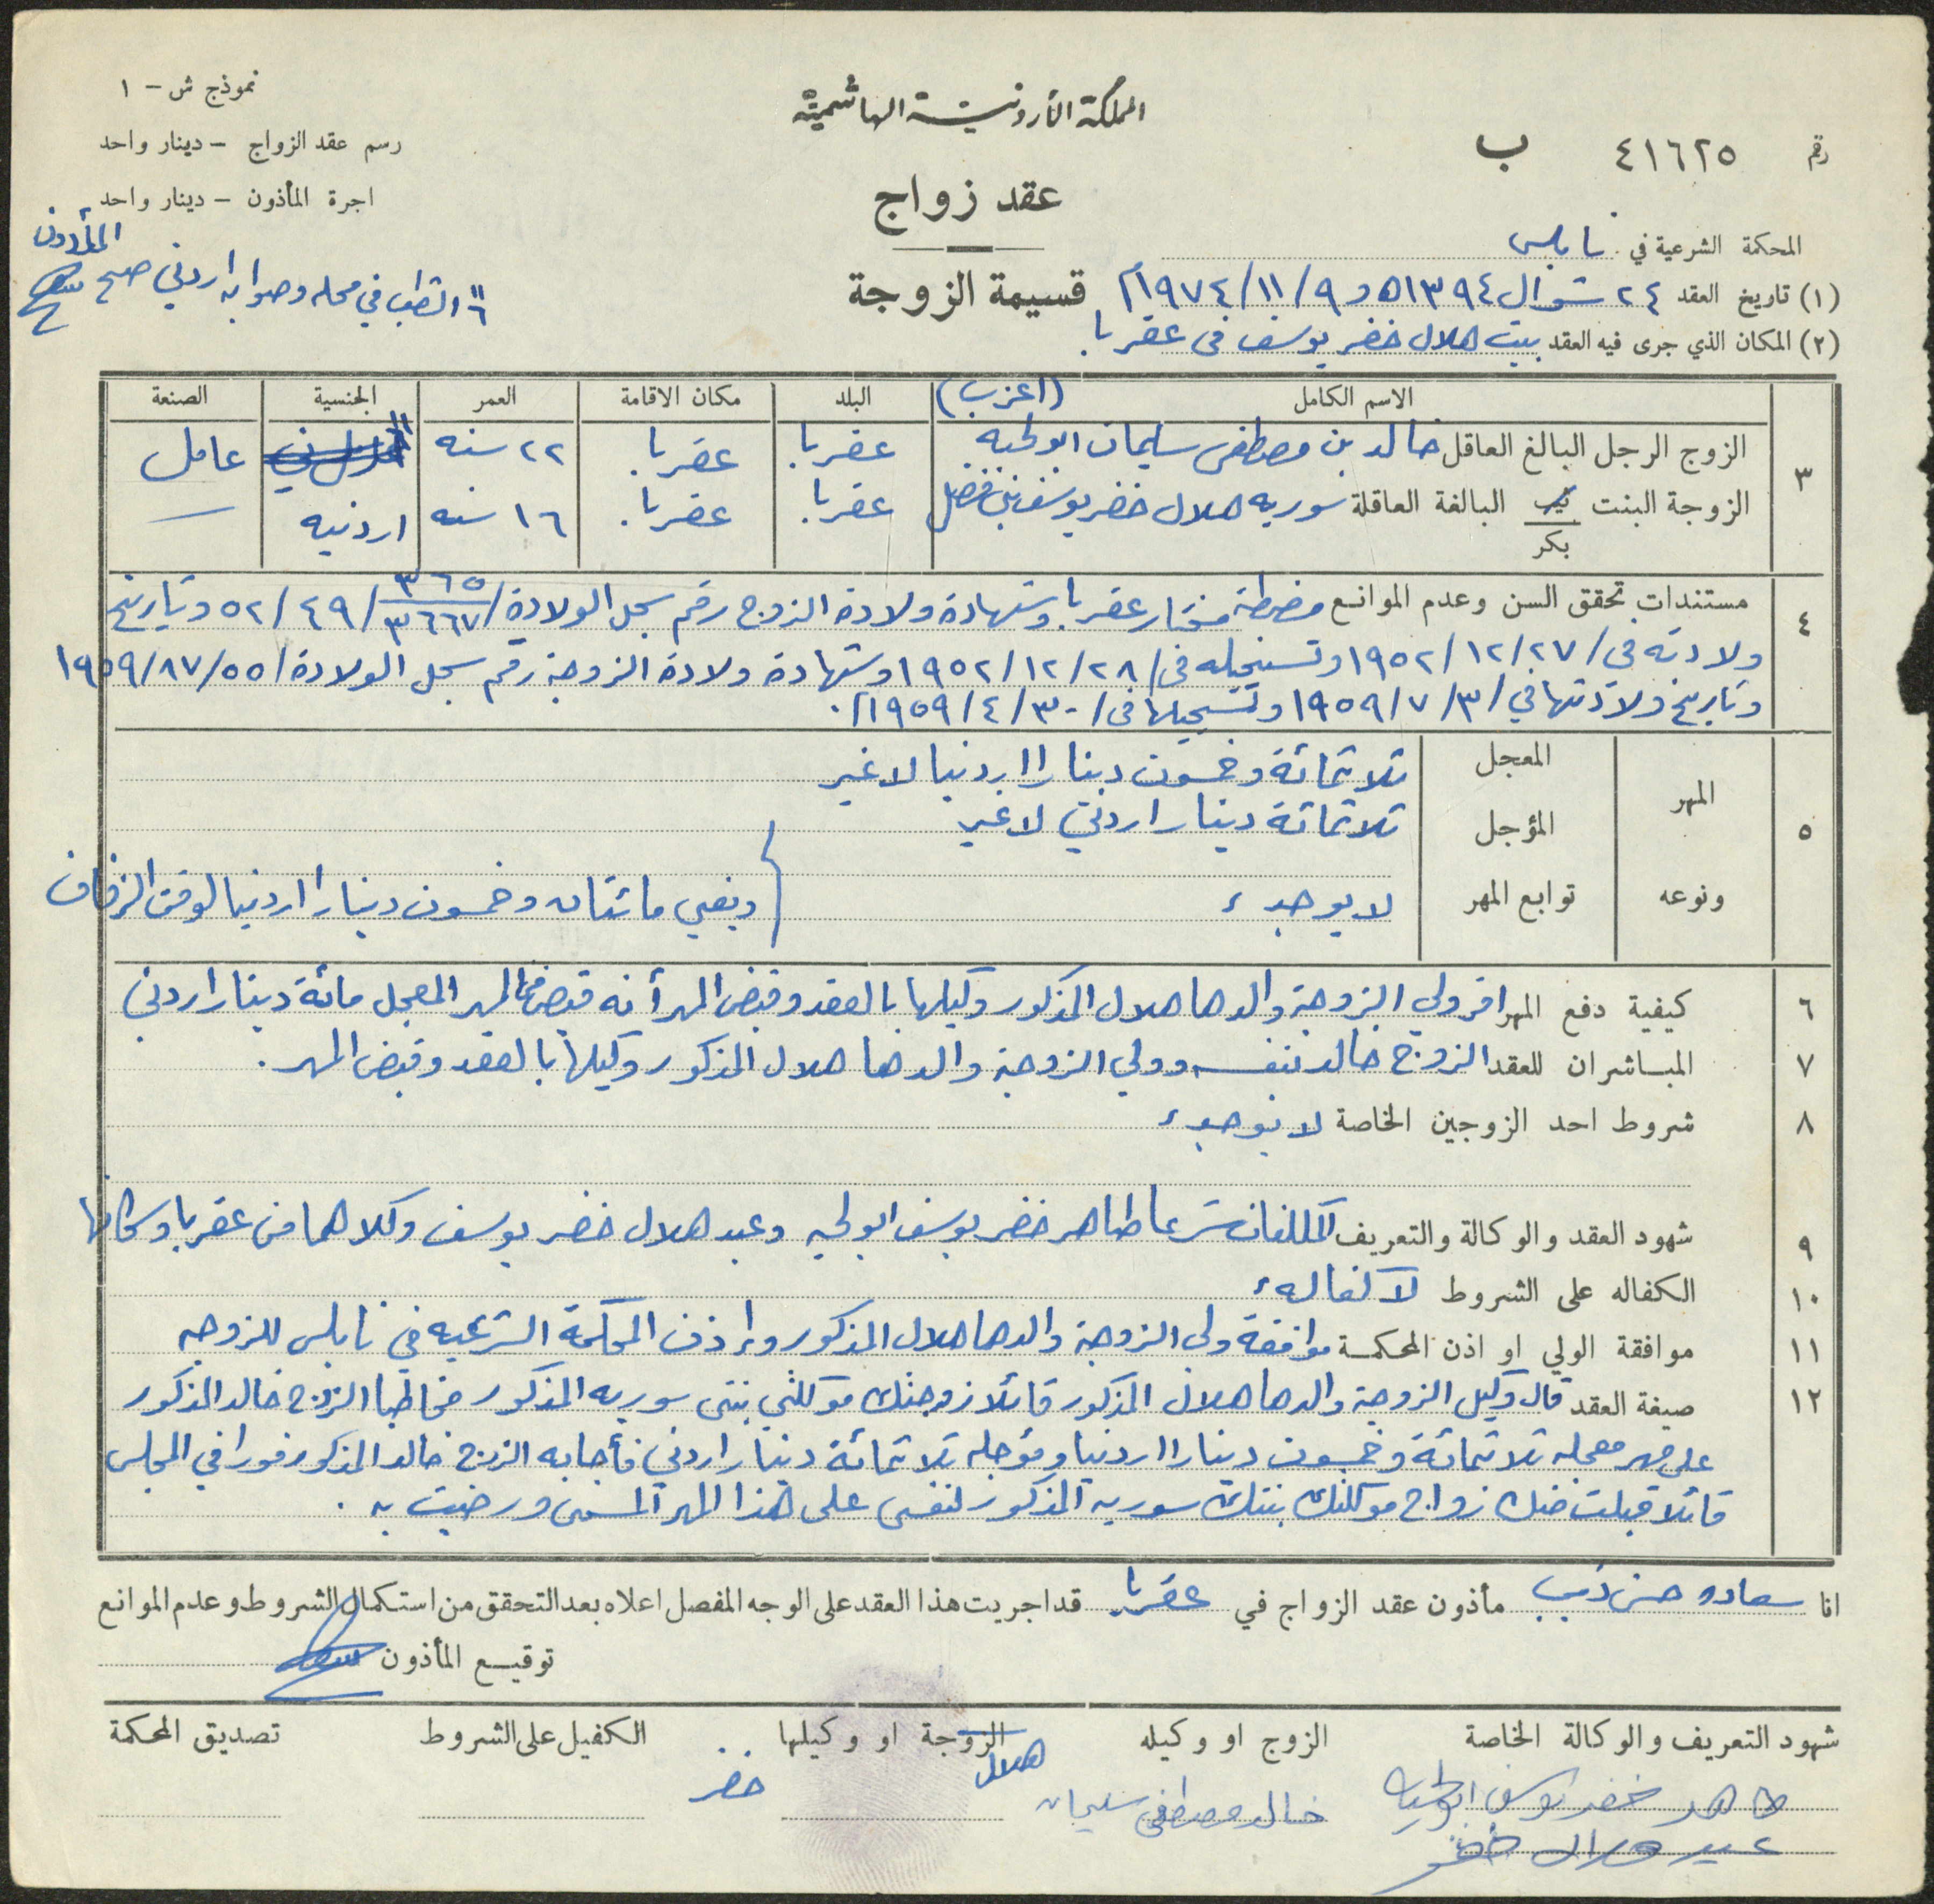 نموذج ش - ١
رسم عقد الزواج - دينار واحد
اجرة المأذون - دينار واحد
المملكة الأردنية الهاشمية
عقد زواج
قسيمة الزوجة
رقم ٤١٦٢٥ ب
المحكمة الشرعية في نابلس
(١) تاريخ العقد ٢٤ شوال ١٣٩٤ه و ٩/١١/١٩٧٤م
(٢) المكان الذي جرى فيه العقد بيت هلال خضر يوسف في عقربا.
المأذون
الشطب في محله وصوابه اردني صح
٣ الاسم الكامل (اعزب) البلد مكان الاقامة العمر الجنسية الصنعة
الزوج الرجل البالغ العاقل خالد بن مصطفى سليمان ابو لحيه عقربا. عقربا. ٢٢ سنه عامل
الزوجة البنت البالغة العاقلة سوريه هلال خضر يوسف بني فضل عقربا. عقربا. ١٦ سنه اردنيه —
بكر
٤ مستندات تحقق السن وعدم الموانع مضبطة مختار عقربا وشهادة ولادة الزوج رقم سجل الولادة/ ٣٦٥/٣٦٦٧/٤٩/٥٢ وتاريخ
ولادته في/٢٧/١٢/١٩٥٢ وتسجيله في/٢٨/١٢/١٩٥٢ وشهادة ولادة الزوجة رقم سجل الولادة/٥٥/٨٧/١٩٥٩
وتاريخ ولادتها في/٣/٧/١٩٥٩ وتسجيلها في/٣٠/٤/١٩٥٩م.
٥ المهر ونوعه
المعجل ثلاثمائة وخمسون دينارا اردنيا لا غير
المؤجل ثلاثمائة دينار اردني لا غير
توابع المهر لا يوجد، وبقي مائتان وخمسون دينارا اردنيا لوقت الزفاف
٦ كيفية دفع المهر اقر ولي الزوجة والدها هلال المذكور وكيلها بالعقد وقبض المهر أنه قبض من المهر المعجل مائة دينار اردني
٧ المباشران للعقد الزوج خالد بنفسه وولي الزوجة والدها هلال المذكور وكيلها بالعقد وقبض المهر.
٨ شروط احد الزوجين الخاصة لا يوجد،
٩ شهود العقد والوكالة والتعريف المكلفان شرعا طاهر خضر يوسف ابو لحيه وعبد هلال خضر يوسف وكلاهما من عقربا وسكانها
١٠ الكفاله على الشروط لا كفاله،
١١ موافقة الولي او اذن المحكمة موافقة ولي الزوجة والدها هلال المذكور واذن المحكمة الشرعيه في نابلس للزوجه
١٢ صيغة العقد قال وكيل الزوجة والدها هلال المذكور قائلا زوجتك موكلتي بنتي سوريه المذكور مخاطبا الزوج خالد المذكور
على مهر معجله ثلاثمائة وخمسون دينارا اردنيا ومؤجله ثلاثمائة دينار اردني فأجابه الزوج خالد المذكور فورا في المجلس
قائلا قبلت منك زواج موكلتك بنتك سوريه المذكور لنفسي على هذا المهر المسمى ورضيت به.
انا سعاده حسن ديب مأذون عقد الزواج في عقربا قد اجريت هذا العقد على الوجه المفصل اعلاه بعد التحقق من استكمال الشروط وعدم الموانع
توقيع المأذون
شهود التعريف والوكالة الخاصة الزوج او وكيله الزوجة او وكيلها الكفيل على الشروط تصديق المحكمة
هلال خضر
طاهر خضر يوسف ابو لحيه خالد مصطفى سليمان
عبد هلال خضر